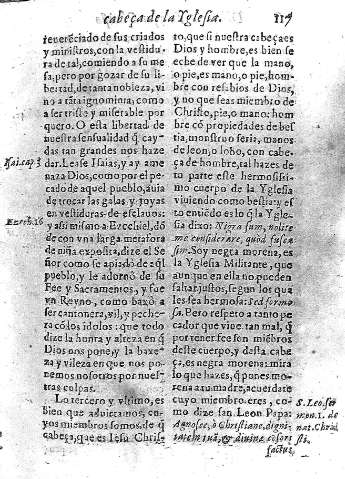 cabeça de la Yglesia. 117
reuerēciado de sus criados
y ministros, con la vestidu
ra de tal, comiendo a su me
sa, pero por gozar de su li
bertad, de tanta nobleza, vi
no a tāta ignominia, como
a ser triste y miserable por
quero. O esta libertad, de
nuestra sensualidad q̄ cay-
das tan grandes nos haze
dar. Lease Isaias, y ay ame
naza Dios, como por el pe-
cado de aquel pueblo, auia
de trocar las galas, y joyas
en vestiduras de esclauos:
y assimismo a Ezechiel, dō
de con vna larga metafora
de niña exposita, dize el Se
ñor como se apiadò de aql̄
pueblo, y le adornò de su
Fee y Sacramentos, y fue
vn Reyno, como baxò a
ser cantonera, vil, y peche-
ra cō los idolos: que todo
dize la honra y alteza en q̄
Dios nos pone, y la baxe-
za y vileza en que nos po-
nemos nosotros por nues-
tras culpas.
Lo tercero y vltimo, es
bien que aduirtamos, cu-
yos miembros somos, de q̄
cabeça, que es Iesu Chris-
Isai. cap. 3
Ezech. 16
to, que si nuestra cabeça es
Dios y hombre, es bien se
eche de ver que la mano,
o pie, es mano, o pie, hom-
bre con resabios de Dios,
y no que seas miembro de
Christo, pie, o mano: hom
bre cō propiedades de bes
tia, monstruo seria, manos
de leon, o lobo, con cabe-
ça de hombre, tal hazes de
tu parte este hermosissi-
mo cuerpo de la Yglesia
viuiendo como bestia: y es
to entiēdo es lo q̄ la Ygle-
sia dixo: Nigra sum, nolite
me considerare, quod fusca
sim. Soy negra morena, es
la Yglesia Militante, que
aunque en ella no pueden
faltar justos, segun los qua
les sea hermosa: sed formo
sa. Pero respeto a tanto pe
cador que viue tan mal, q̄
por tener fee son miēbros
deste cuerpo, y desta cabe
ça, es negra morena: mira
lo que hazes, q̄ pones mo-
rena a tu madre, acuerdate
cuyo miembro eres, co-
mo dize san Leon Papa:
Agnosce, ò Christiane, digni-
tatem tuā, & diuinæ cōsors
factus
S. Leo. ser
mon. 1. de
nat. Chri
sti.